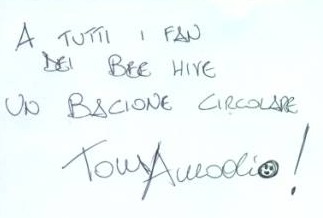 A TUTTI I FAN
DEI BEE HIVE
UN BACIONE CIRCOLARE
Tony Amodio!